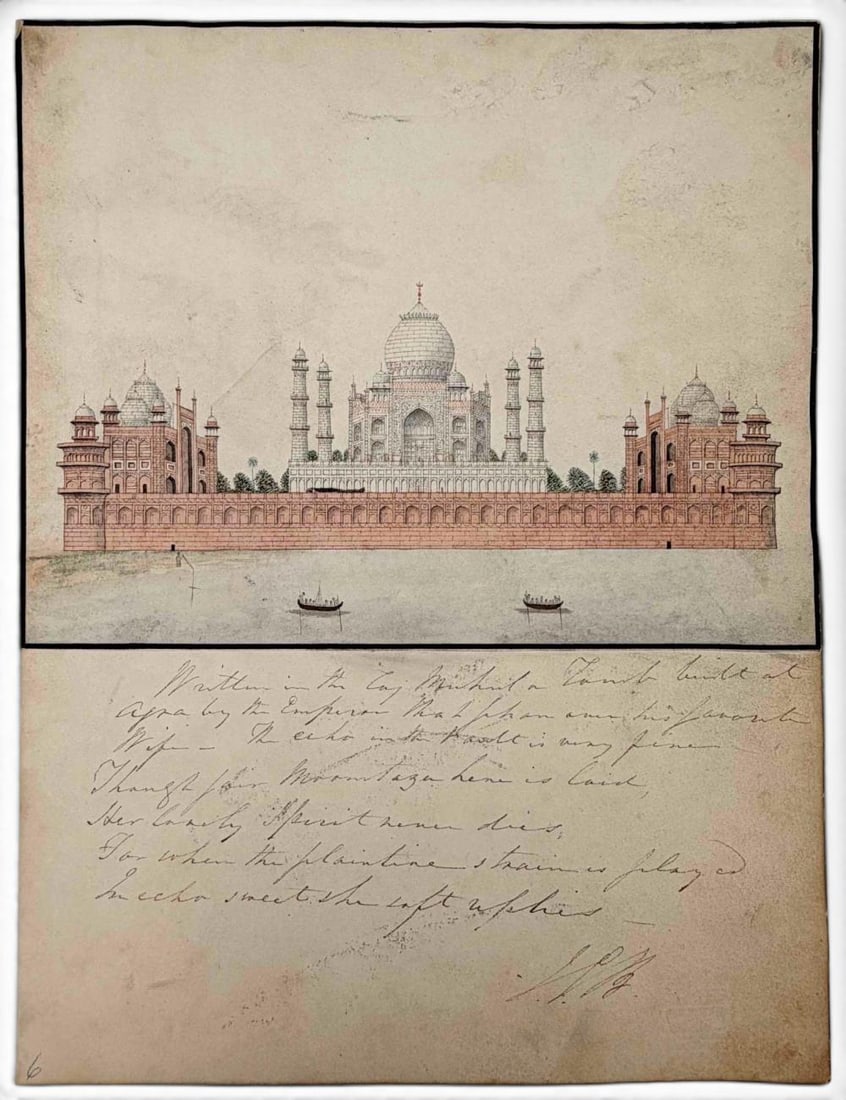 Written in the Taj Mehul a Tomb built at
Agra by the Emperor Shah Jehan over his favorite
Wife – The echo in the Vault is very fine –
Though fair Moomtaza here is laid,
Her lovely Spirit never dies,
For when the plaintive strain is played
In echo sweet she soft replies –
6